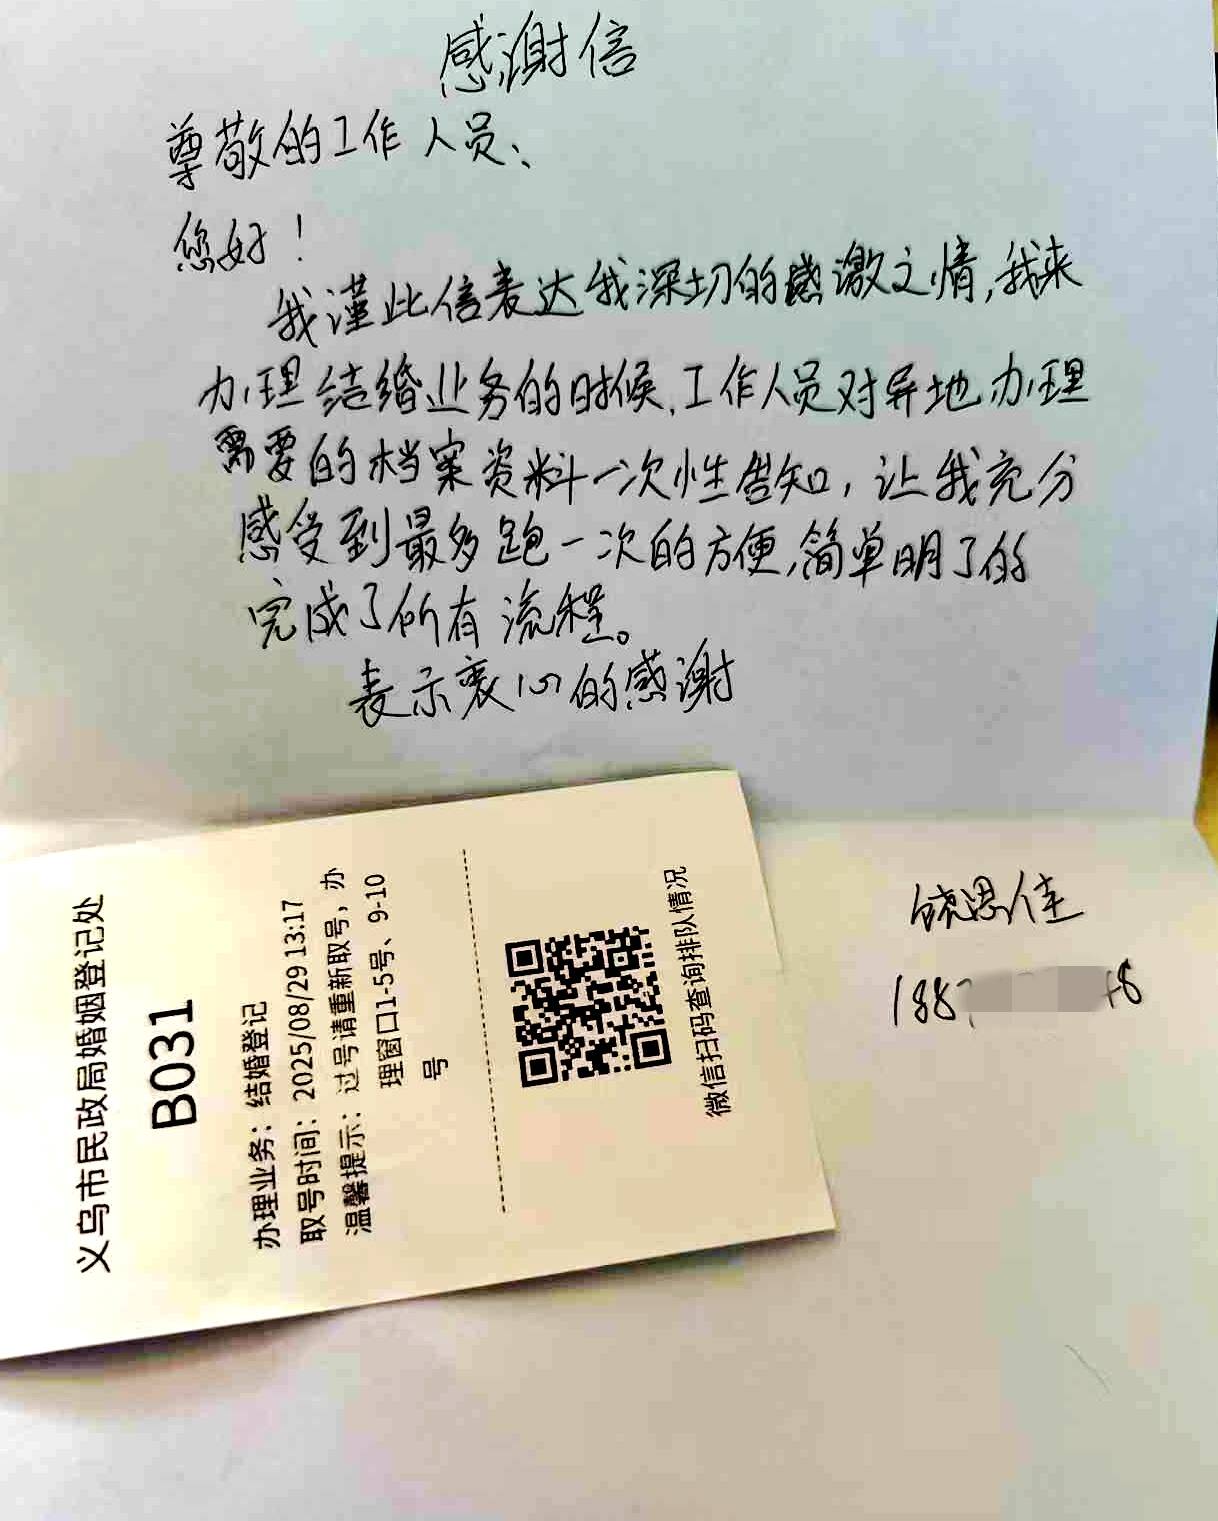 感谢信
尊敬的工作人员、
您好！
我谨此信表达我深切的感激之情,我来
办理结婚业务的时候,工作人员对异地办理
需要的档案资料一次性告知,让我充分
感受到最多跑一次的方便,简单明了的
完成了所有流程。
表示衷心的感谢
饶思佳
188
48
义乌市民政局婚姻登记处
B031
办理业务：结婚登记
取号时间：2025/08/29 13:17
温馨提示：过号请重新取号，办
理窗口1-5号、9-10
号
微信扫码查询排队情况